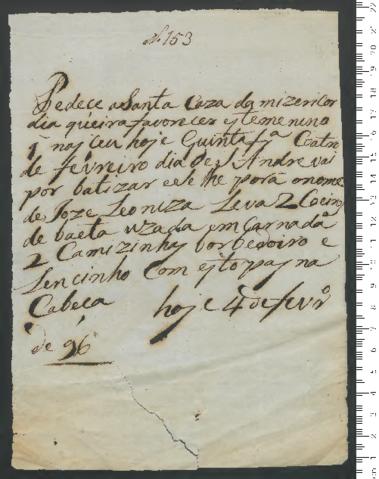 Nº 153
Pedece a Santa Caza da mizericor
dia queira favorecer este menino
q nasceu hoje Quinta fª Coatro
de fevreiro dia de S. Andre vai
por batizar e se lhe porá o nome
de Joze Leoniza Leva 2 Coeiros
de baeta uzada emcarnada
2 Camizinhas bordedoiro e
Lencinho Com esto pas na
Cabeca hoje 4 de fevrº
de 96